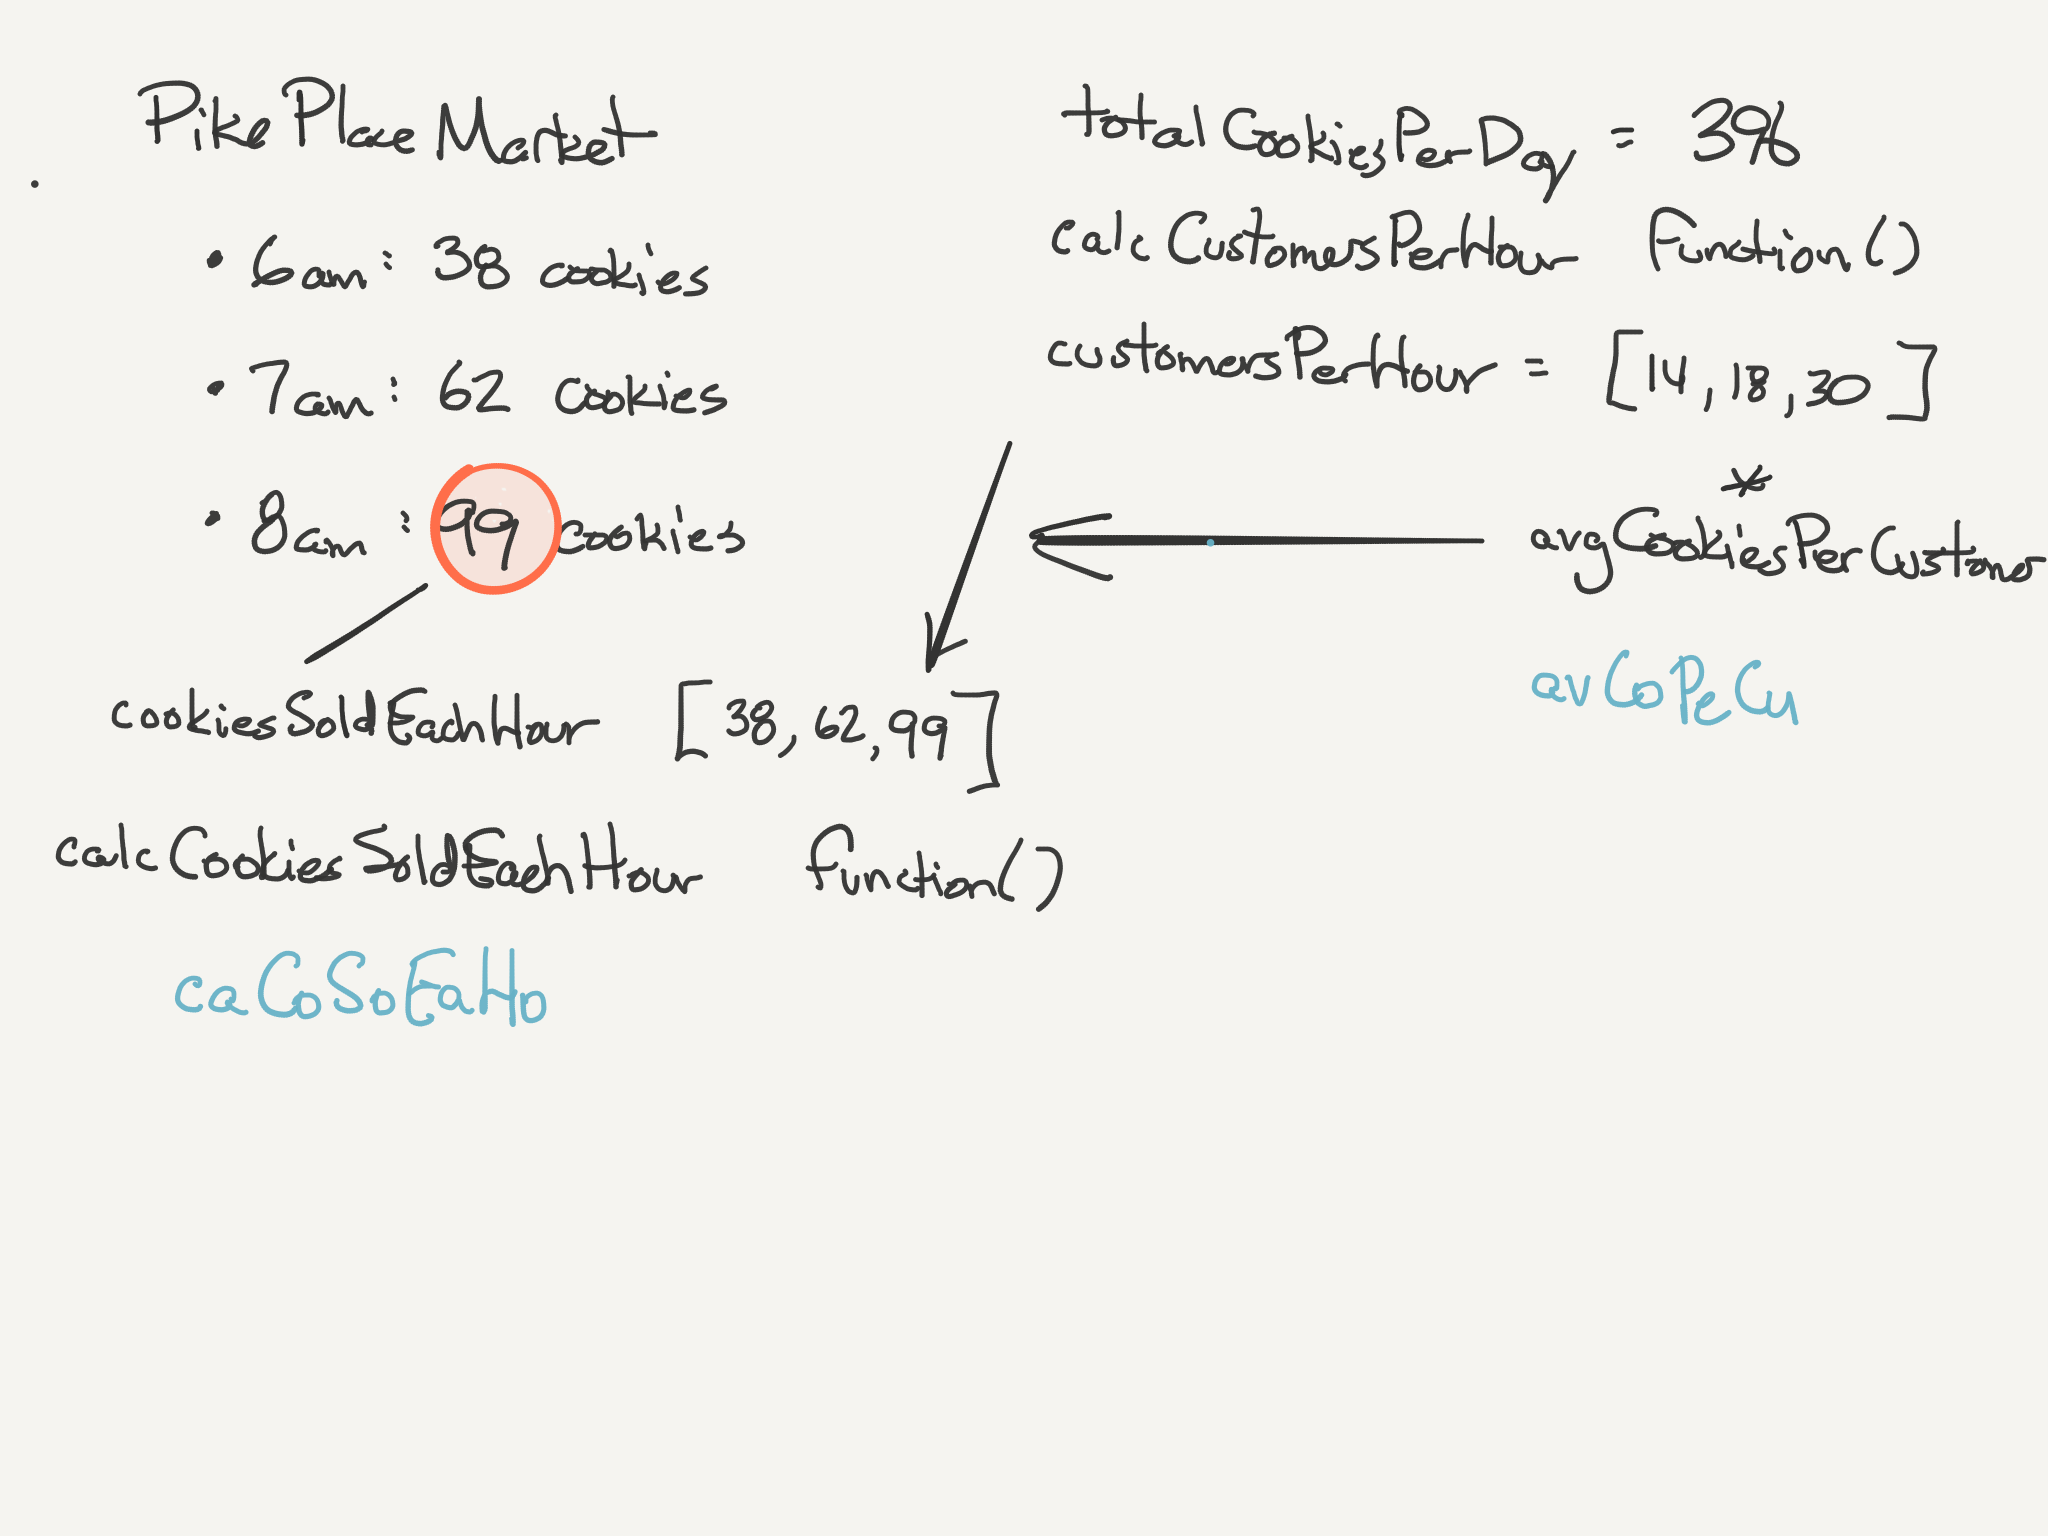 Pike Place Market
• 6am: 38 cookies
• 7am: 62 cookies
• 8am: 99 cookies
cookiesSoldEachHour [38, 62, 99]
calcCookiesSoldEachHour function()
caCoSoEaHo
totalCookiesPerDay =
calcCustomersPerHour function()
customersPerHour = [14, 18, 30]
*
avgCookiesPerCustomer
avCoPeCu